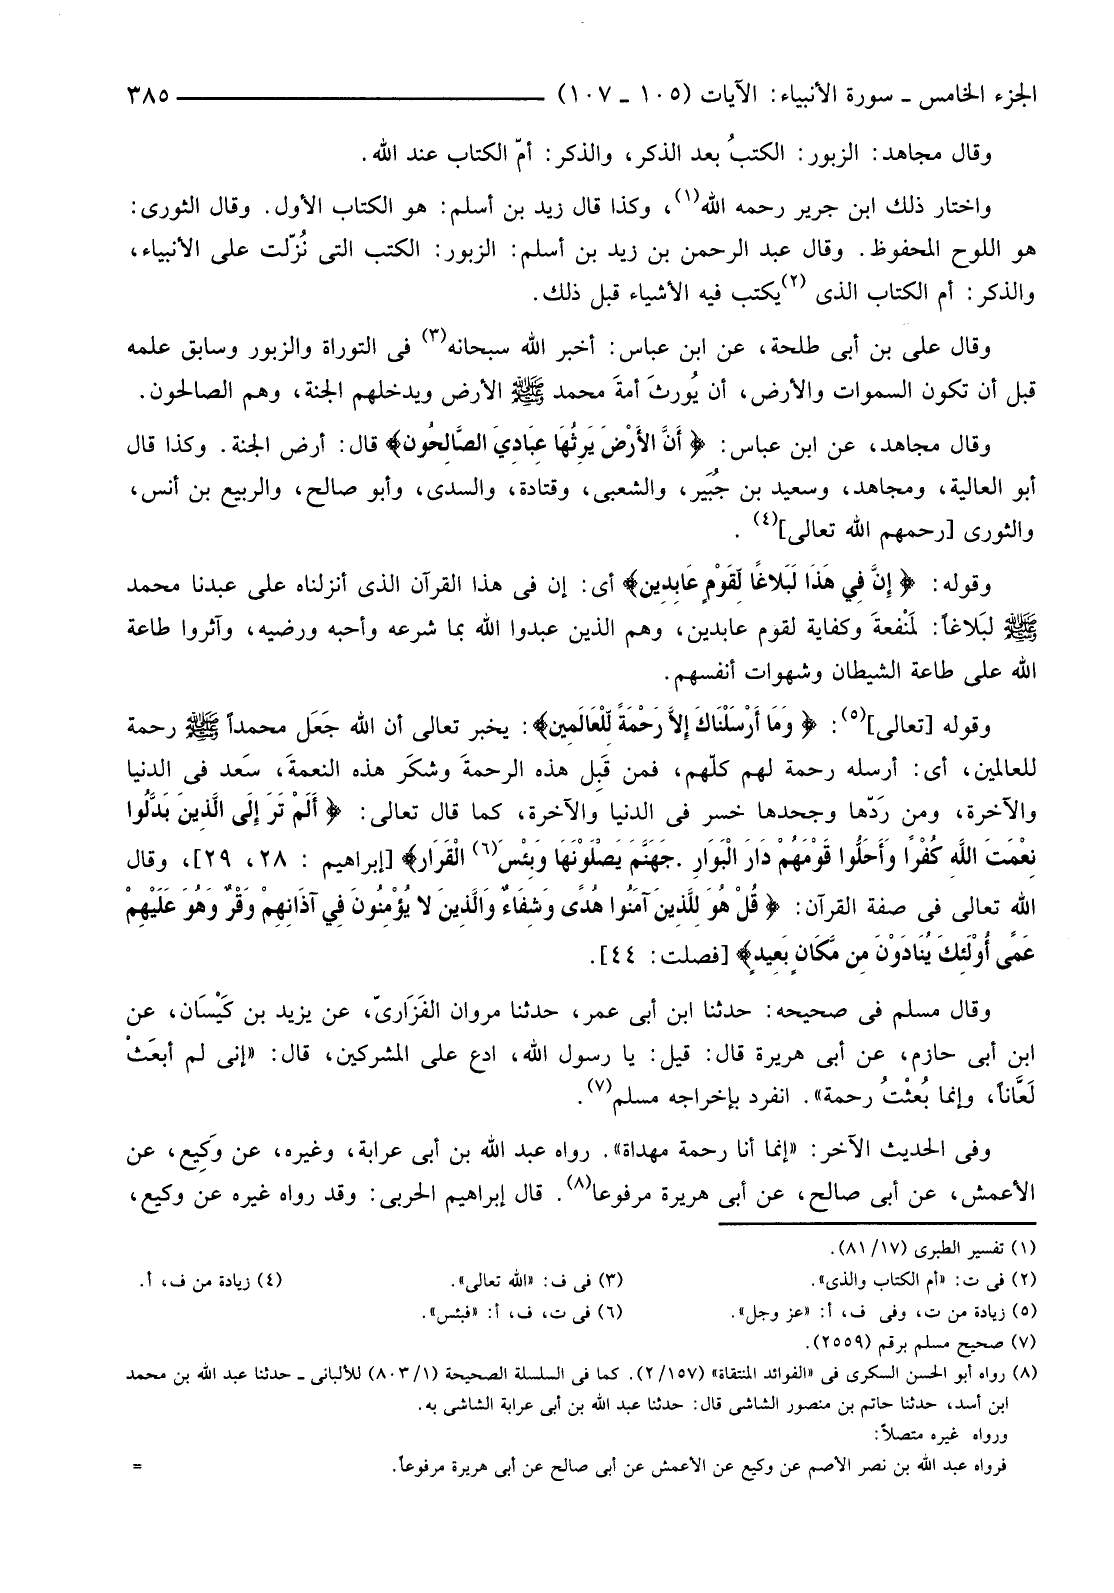 الجزء الخامس ـ سورة الأنبياء: الآيات (١٠٥ ـ ١٠٧) ٣٨٥
وقال مجاهد: الزبور: الكتبُ بعد الذكر، والذكر: أمّ الكتاب عند الله.
واختار ذلك ابن جرير رحمه الله(١)، وكذا قال زيد بن أسلم: هو الكتاب الأول. وقال الثورى:
هو اللوح المحفوظ. وقال عبد الرحمن بن زيد بن أسلم: الزبور: الكتب التى نُزّلت على الأنبياء،
والذكر: أم الكتاب الذى (٢)يكتب فيه الأشياء قبل ذلك.
وقال على بن أبى طلحة، عن ابن عباس: أخبر الله سبحانه(٣) فى التوراة والزبور وسابق علمه
قبل أن تكون السموات والأرض، أن يُورثَ أمةَ محمد ﷺ الأرض ويدخلهم الجنة، وهم الصالحون.
وقال مجاهد، عن ابن عباس: ﴿ أَنَّ الأَرْضَ يَرِثُهَا عِبَادِيَ الصَّالِحُون﴾ قال: أرض الجنة. وكذا قال
أبو العالية، ومجاهد، وسعيد بن جُبَير، والشعبى، وقتادة، والسدى، وأبو صالح، والربيع بن أنس،
والثورى [رحمهم الله تعالى](٤) .
وقوله: ﴿ إِنَّ فِي هَذَا لَبَلاغًا لِّقَوْمٍ عَابِدِين﴾ أى: إن فى هذا القرآن الذى أنزلناه على عبدنا محمد
ﷺ لبَلاغاً: لمَنْفعةَ وكفاية لقوم عابدين، وهم الذين عبدوا الله بما شرعه وأحبه ورضيه، وآثروا طاعة
الله على طاعة الشيطان وشهوات أنفسهم.
وقوله [تعالى](٥): ﴿ وَمَا أَرْسَلْنَاكَ إِلاَّ رَحْمَةً لِّلْعَالَمِين﴾: يخبر تعالى أن الله جَعَل محمداً ﷺ رحمة
للعالمين، أى: أرسله رحمة لهم كلّهم، فمن قَبِل هذه الرحمةَ وشكَر هذه النعمةَ، سَعد فى الدنيا
والآخرة، ومن رَدّها وجحدها خسر فى الدنيا والآخرة، كما قال تعالى: ﴿ أَلَمْ تَرَ إِلَى الَّذِينَ بَدَّلُوا
نِعْمَتَ اللَّهِ كُفْرًا وَأَحَلُّوا قَوْمَهُمْ دَارَ الْبَوَارِ .جَهَنَّمَ يَصْلَوْنَهَا وَبِئْسَ(٦) الْقَرَار﴾ [إبراهيم : ٢٨، ٢٩]، وقال
الله تعالى فى صفة القرآن: ﴿ قُلْ هُوَ لِلَّذِينَ آمَنُوا هُدًى وَشِفَاءٌ وَالَّذِينَ لا يُؤْمِنُونَ فِي آذَانِهِمْ وَقْرٌ وَهُوَ عَلَيْهِمْ
عَمًى أُوْلَئِكَ يُنَادَوْنَ مِن مَّكَانٍ بَعِيدٍ﴾ [فصلت: ٤٤].
وقال مسلم فى صحيحه: حدثنا ابن أبى عمر، حدثنا مروان الفَزَارىّ، عن يزيد بن كَيْسَان، عن
ابن أبى حازم، عن أبى هريرة قال: قيل: يا رسول الله، ادع على المشركين، قال: «إنى لم أبعَثْ
لَعَّاناً، وإنما بُعثْتُ رحمة». انفرد بإخراجه مسلم(٧).
وفى الحديث الآخر: «إنما أنا رحمة مهداة». رواه عبد الله بن أبى عرابة، وغيره، عن وَكِيع، عن
الأعمش، عن أبى صالح، عن أبى هريرة مرفوعا(٨). قال إبراهيم الحربى: وقد رواه غيره عن وكيع،
(١) تفسير الطبرى (١٧/ ٨١).
(٢) فى ت: «أم الكتاب والذى». (٣) فى ف: «الله تعالى». (٤) زيادة من ف، أ.
(٥) زيادة من ت، وفى ف، أ: «عز وجل». (٦) فى ت، ف، أ: «فبئس».
(٧) صحيح مسلم برقم (٢٥٥٩).
(٨) رواه أبو الحسن السكرى فى «الفوائد المنتقاة» (٢/١٥٧). كما فى السلسلة الصحيحة (٨٠٣/١) للألبانى ـ حدثنا عبد الله بن محمد
ابن أسد، حدثنا حاتم بن منصور الشاشى قال: حدثنا عبد الله بن أبى عرابة الشاشى به.
ورواه غيره متصلاً:
فرواه عبد الله بن نصر الأصم عن وكيع عن الأعمش عن أبى صالح عن أبى هريرة مرفوعاً. =